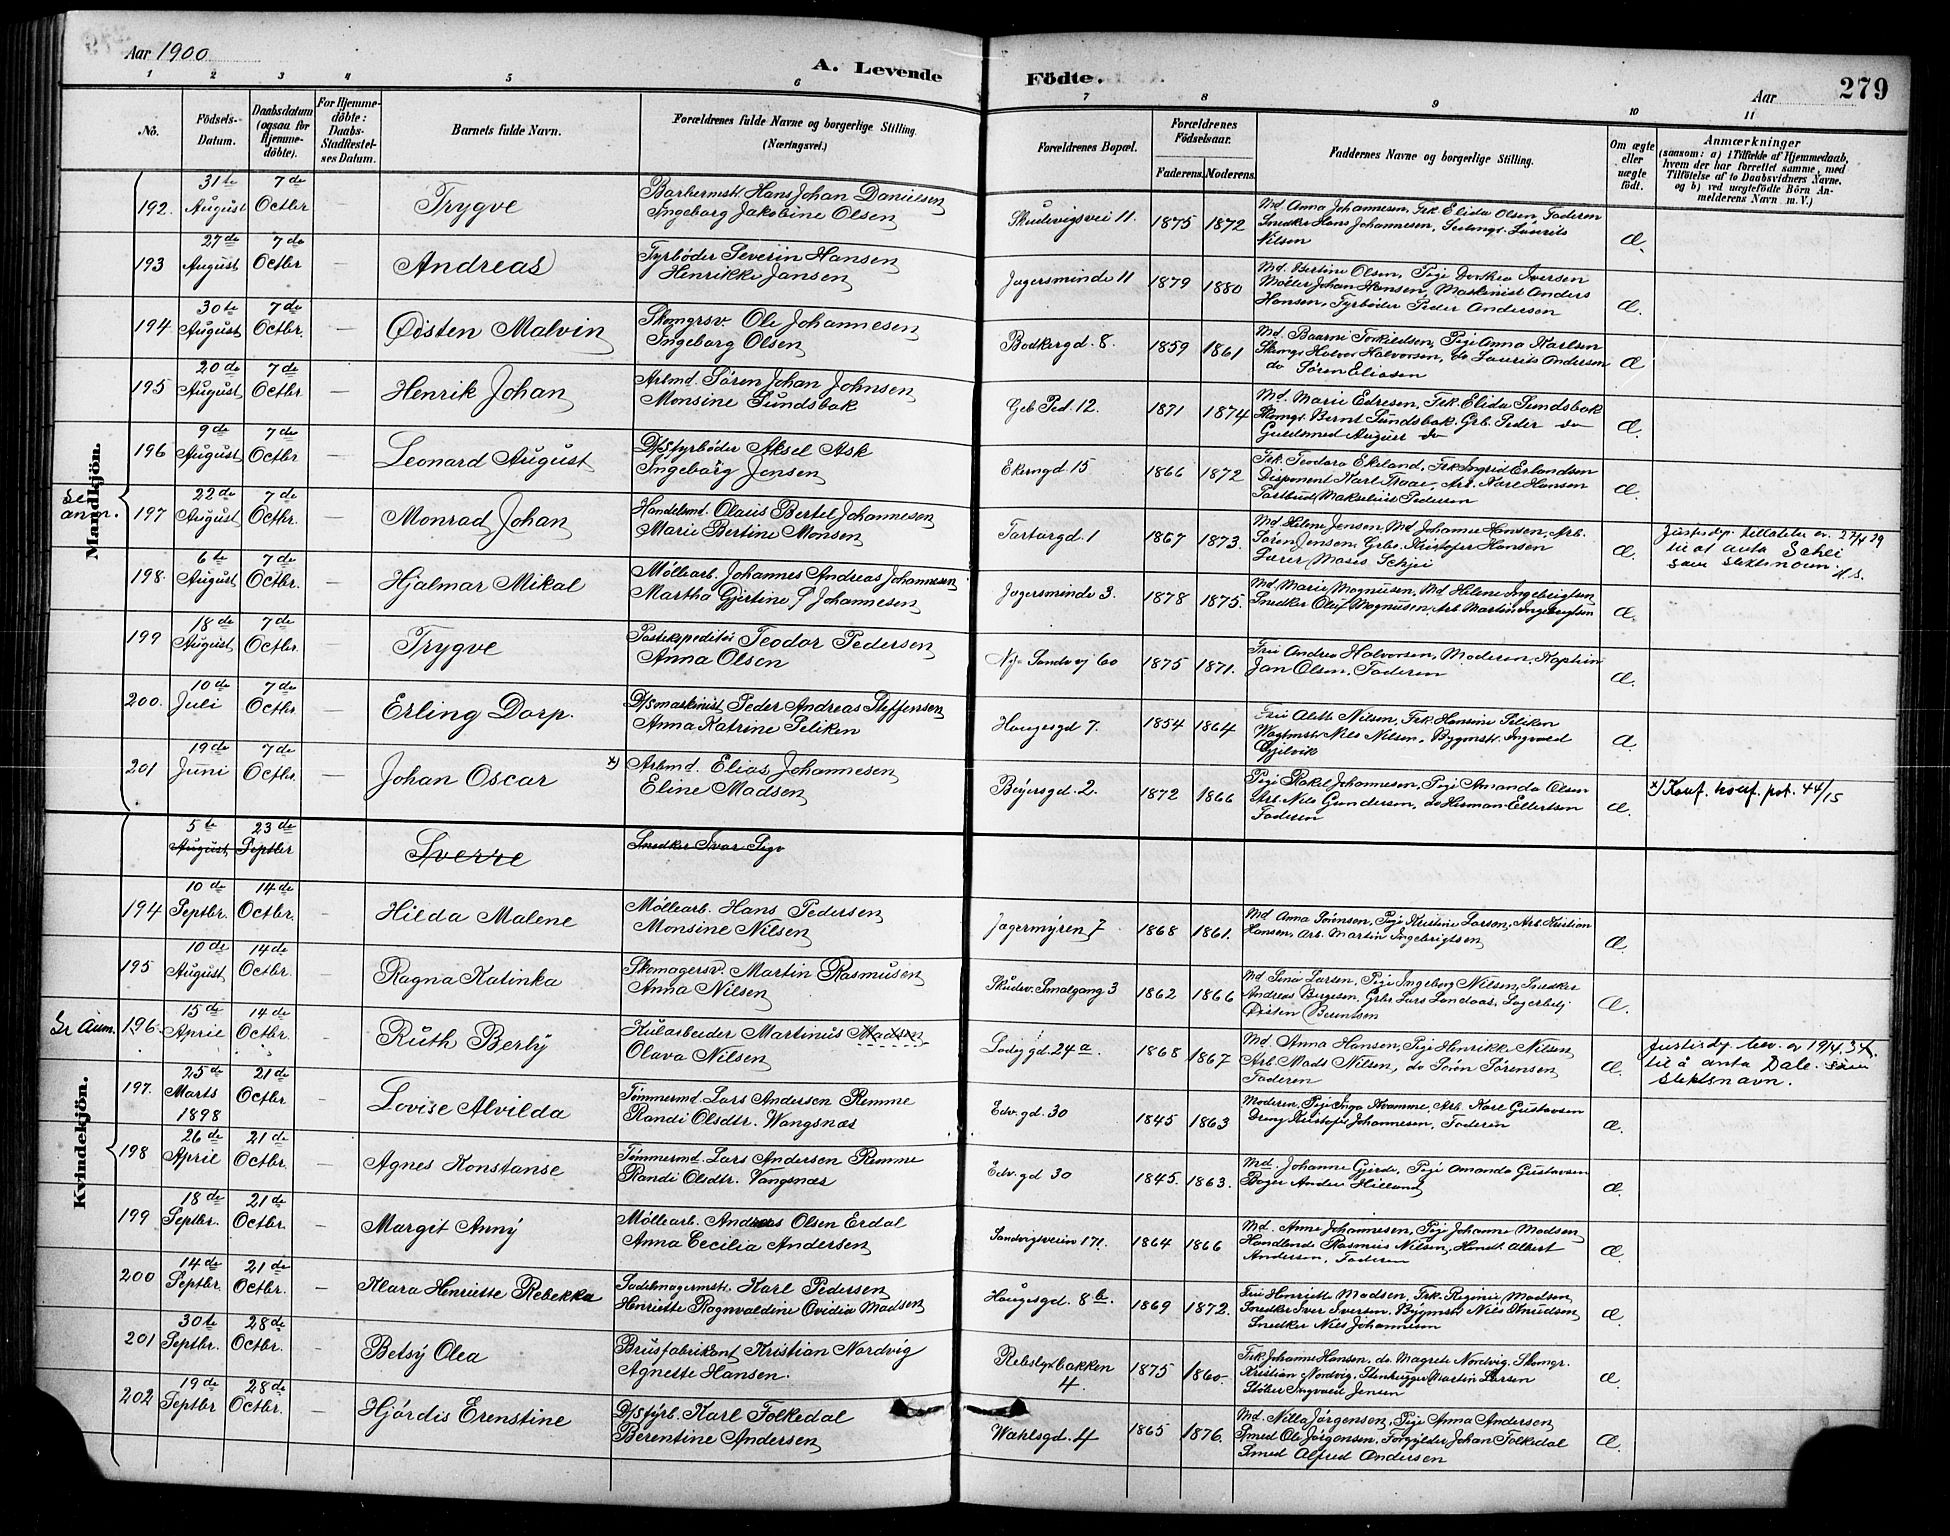 Aar 1900
A. Levende Födte.
Aar
279
1 2 3 4 5 6 7 8 9 10 11
No.
Födsels-Datum.
Daabsdatum (ogsaa for Hjemme-döbte).
For Hjemme-döbte: Daabs-Stadfestel-ses Datum.
Barnets fulde Navn.
Forældrenes fulde Navne og borgerlige Stilling. (Næringsvei.)
Forældrenes Bopæl.
Forældrenes Födselsaar.
Faderens. Moderens.
Faddernes Navne og borgerlige Stilling.
Om ægte eller uægte födt.
Anmærkninger
(saasom: a) i Tilfælde af Hjemmedaab, hvem der har forrettet samme, med Tilföielse af to Daabsvidners Navne, og b) ved uægtefödte Börn An-melderens Navn m. V.)
Mandkjön.
192. 31te August 7de Octbr — Trygve
Barbermstr. Hans Johan Danielsen
Ingeborg Jakobine Olsen
Skudevigsvei 11. 1875 1872
Md. Anna Johannesen, Frk. Elida Olsen, Faderen
Snedker Hans Johannesen, Seilmgs. Laurits
Nilsen
Æ.
193 27de August 7de Octbr — Andreas
Fyrböder Severin Hansen
Henrikke Jansen
Jægersminde 11 1879 1880
Md. Bertine Olsen, Pige Dorthea Iversen
Möller Johan Hansen, Maskinist Anders
Hansen, Fyrböder Peder Andersen
Æ.
194 30te August 7de Octbr. — Öisten Malvin
Skomgrsv. Ole Johannesen
Ingeborg Olsen
Bödkergd. 8. 1859 1861
Md. Baarni Torkildsen, Pige Anna Karlsen
Skomgr Halvor Halvorsen, do Laurits Andersen
do Sören Eliasen
Æ
195 20de August 7de Octbr — Henrik Johan
Arbmd. Sören Johan Johnsen
Monsine Sundsbak
Geb. Ped. 12. 1871 1874
Md. Marie Edresen, Frk. Elida Sundsbak
Skomgr. Bernt Sundsbak, Grb. Peder do
Guldsmed August do
Æ.
196 9de August 7de Octbr — Leonard August
D/S fyrböder Aksel Ask
Ingeborg Jensen
Ekrengd. 15 1866 1872
Frk. Teodora Ekeland, Frk Ingrid Erlandsen
Disponent Karl Staae, Arb. Karl Hansen
Postbud Makselius Pedersen
Æ.
Se anm. 197 22de August 7de Octbr. — Monrad Johan
Handelsmd. Olaus Bertel Johannesen
Marie Bertine Monsen
Tartargd. 1 1867 1873.
Md Helene Jensen, Md Johanne Hansen, Arb.
Sören Jensen, Grbr. Kristofer Hansen
Lærer Moses Schjei
Æ.
Justisdp. tillatelse av 27/4 29
til at anta Schei
som slektsnavn. H.S.
198. 6te August 7de Octbr. — Hjalmar Mikal
Möllearb. Johannes Andreas Johannesen
Martha Gjertine f Johannesen
Jægersminde 3. 1878 1875.
Md. Marie Magnusen, Md Helene Ingebrigtsen
Snedker Oluf Magnusen, Arb Martin Ingebrigtsen
Æ.
199 18de August 7de Octbr. — Trygve
Postekspeditör Teodor Pedersen
Anna Olsen
Nye Sandvej 60 1875 1871.
Fru Andrea Halvorsen, Moderen, Kaptein
Jan Olsen, Faderen
Æ.
200. 10de Juli 7de Octbr — Erling Dorp.
D/S maskinist Peder Andreas Steffensen
Anna Katrine Peliken
Haugesgd 7. 1854 1864
Fru Alette Nilsen, Frk. Hansine Peliken
Vagtmstr Nils Nilsen, Bygmstr. Ingvald
Gjilvik
Æ.
201 19de Juni 7de Octbr. — Johan Oscar
x) Arbmd. Elias Johannesen
Eline Madsen
Beyersgd. 2. 1872 1866
Pige Rakel Johannesen, Pige Amanda Olsen
Arb. Nils Gundersen, do Herman Ellertsen
Faderen
Æ.
x) Konf. konf. prt. 44/15
5te August, 23de Septbr Sverre
Snedker Ivar Sege
Kvindekjön.
194 10de Septbr. 14de Octbr. — Hilda Malene
Möllearb. Hans Pedersen
Monsine Nilsen
Jægermyren 7 1868 1861.
Md Anna Sörensen, Pige Kristine Larsen, Arb. Kristian
Hansen, Arb. Martin Ingebrigtsen
Æ.
195 10de August 14de Octbr. — Ragna Katinka
Skomagersv. Martin Rasmusen
Anna Nilsen
Skudev. Smalgang 3 1862 1866
Md Sina Larsen, Pige Ingeborg Nilsen, Snedker
Andreas Bergesen, Grbr Lars Landaas, Lagerbetj
Öisten Berentsen
Æ.
Se Anm. 196. 15de April 14de Octbr. — Ruth Berly
Kularbeider Martinus Madsen
Olava Nilsen
Ladegd. 24a. 1868 1867
Md. Anna Hansen, Pige Henrikke Nilsen
Arb. Mads Nilsen, do Sörn Sörensen
Faderen
Æ.
Justisdp. bev. av 19/4. 34.
til å anta Dale som
slektsnavn.
197. 25de Marts 1898 21de Octbr — Lovise Alvilda
Tömmermd. Lars Andersen Remme
Randi Olsdtr. Vangsnæs
Edv. gd. 30 1845 1863
Moderen, Pige Inga Kvamme, Arb. Karl Gustavsen
Dreng Kristofer Johannesen, Faderen
Æ.
198 26de April 21de Octbr. — Agnes Konstanse
Tömmermd. Lars Andersen Remme
Randi Olsdtr. Vangsnæs
Edv. gd 30 1845. 1863.
Md. Johanne Gjerde, Pige Amanda Gustavsen
Bager Anders Hilland
Æ.
199 18de Septbr. 21de Octbr. — Margit Anny
Möllearb. Andreas Olsen Erdal
Anna Cecilia Andersen
Sandvigsveien 171. 1864 1866
Md. Anne Johannesen, Pige Johanne Madsen
Handlende Rasmus Nilsen, Handl Albert
Andersen, Faderen
Æ.
200 14de Septbr 21de Octbr. — Klara Henriette Rebekka
Sadelmagermstr. Karl Pedersen
Henriette Ragnvaldine Ovidia Madsen
Haugesgd. 8b. 1869 1872.
Fru Henriette Madsen, Frk. Regine Madsen
Snedker Iver Iversen, Bygmstr Nils Knudsen
Snedker Nils Johannesen
Æ.
201 30te Septbr. 28de Octbr. — Betsy Olea
Brusfabrikant Kristian Nordvig
Agnette Hansen.
Rebslgrbakken 4. 1875 1860.
Frk Johanne Hansen, do. Magrete Nordvig, Skomgr.
Kristian Nordvig, Stenhugger Martin Larsen
Stöber Ingvald Jensen
Æ.
202 19de Septbr 28de Octbr. — Hjördis Erenstine
D/S fyrb. Karl Folkedal
Berentine Andersen
Wahlsgd. 4 1865 1876.
Md. Nilla Jörgensen, Pige Anna Andersen
Smed Ole Jörgensen, Forgylder Johan Folkedal
Smed Alfred Andersen
Æ.